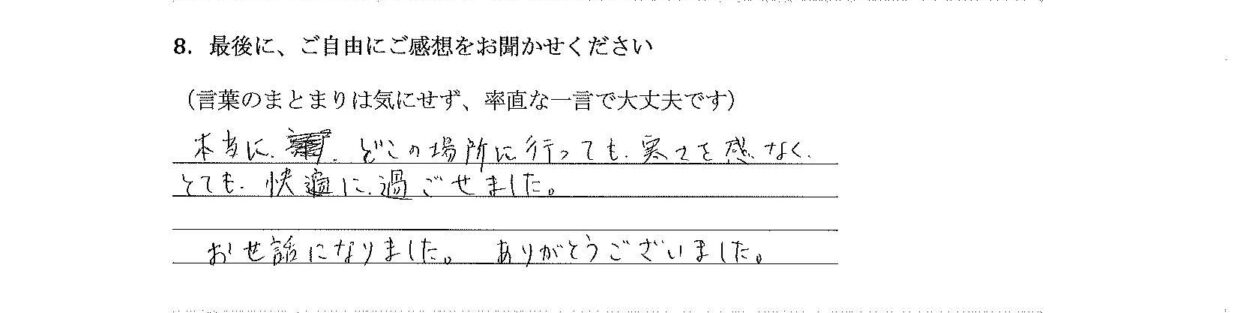 8. 最後に、ご自由にご感想をお聞かせください
（言葉のまとまりは気にせず、率直な一言で大丈夫です）
本当に、どこの場所に行っても、寒さを感なく、
とても、快適に、過ごせました。
お世話になりました。 ありがとうございました。